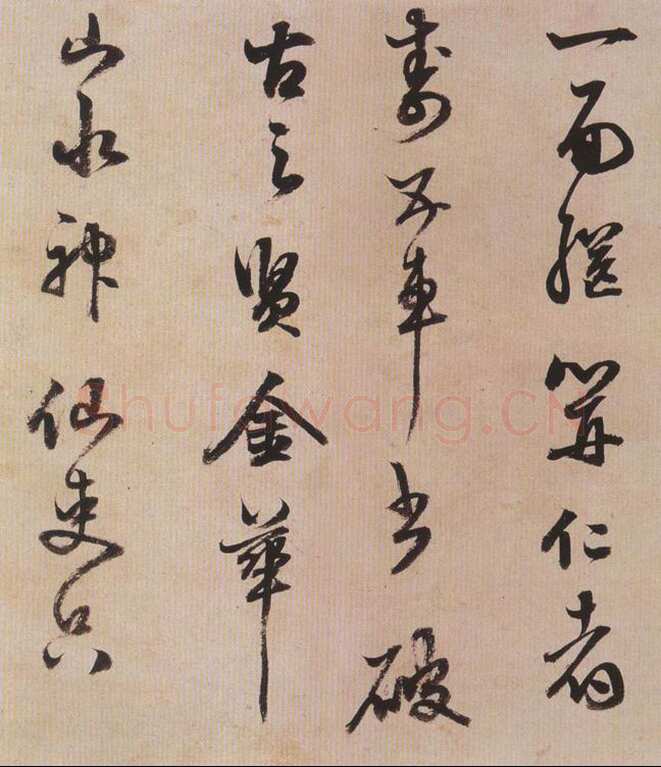 一仁者
壽五車書破
古之賢金華
山水神仙吏只
Shufawang.CN